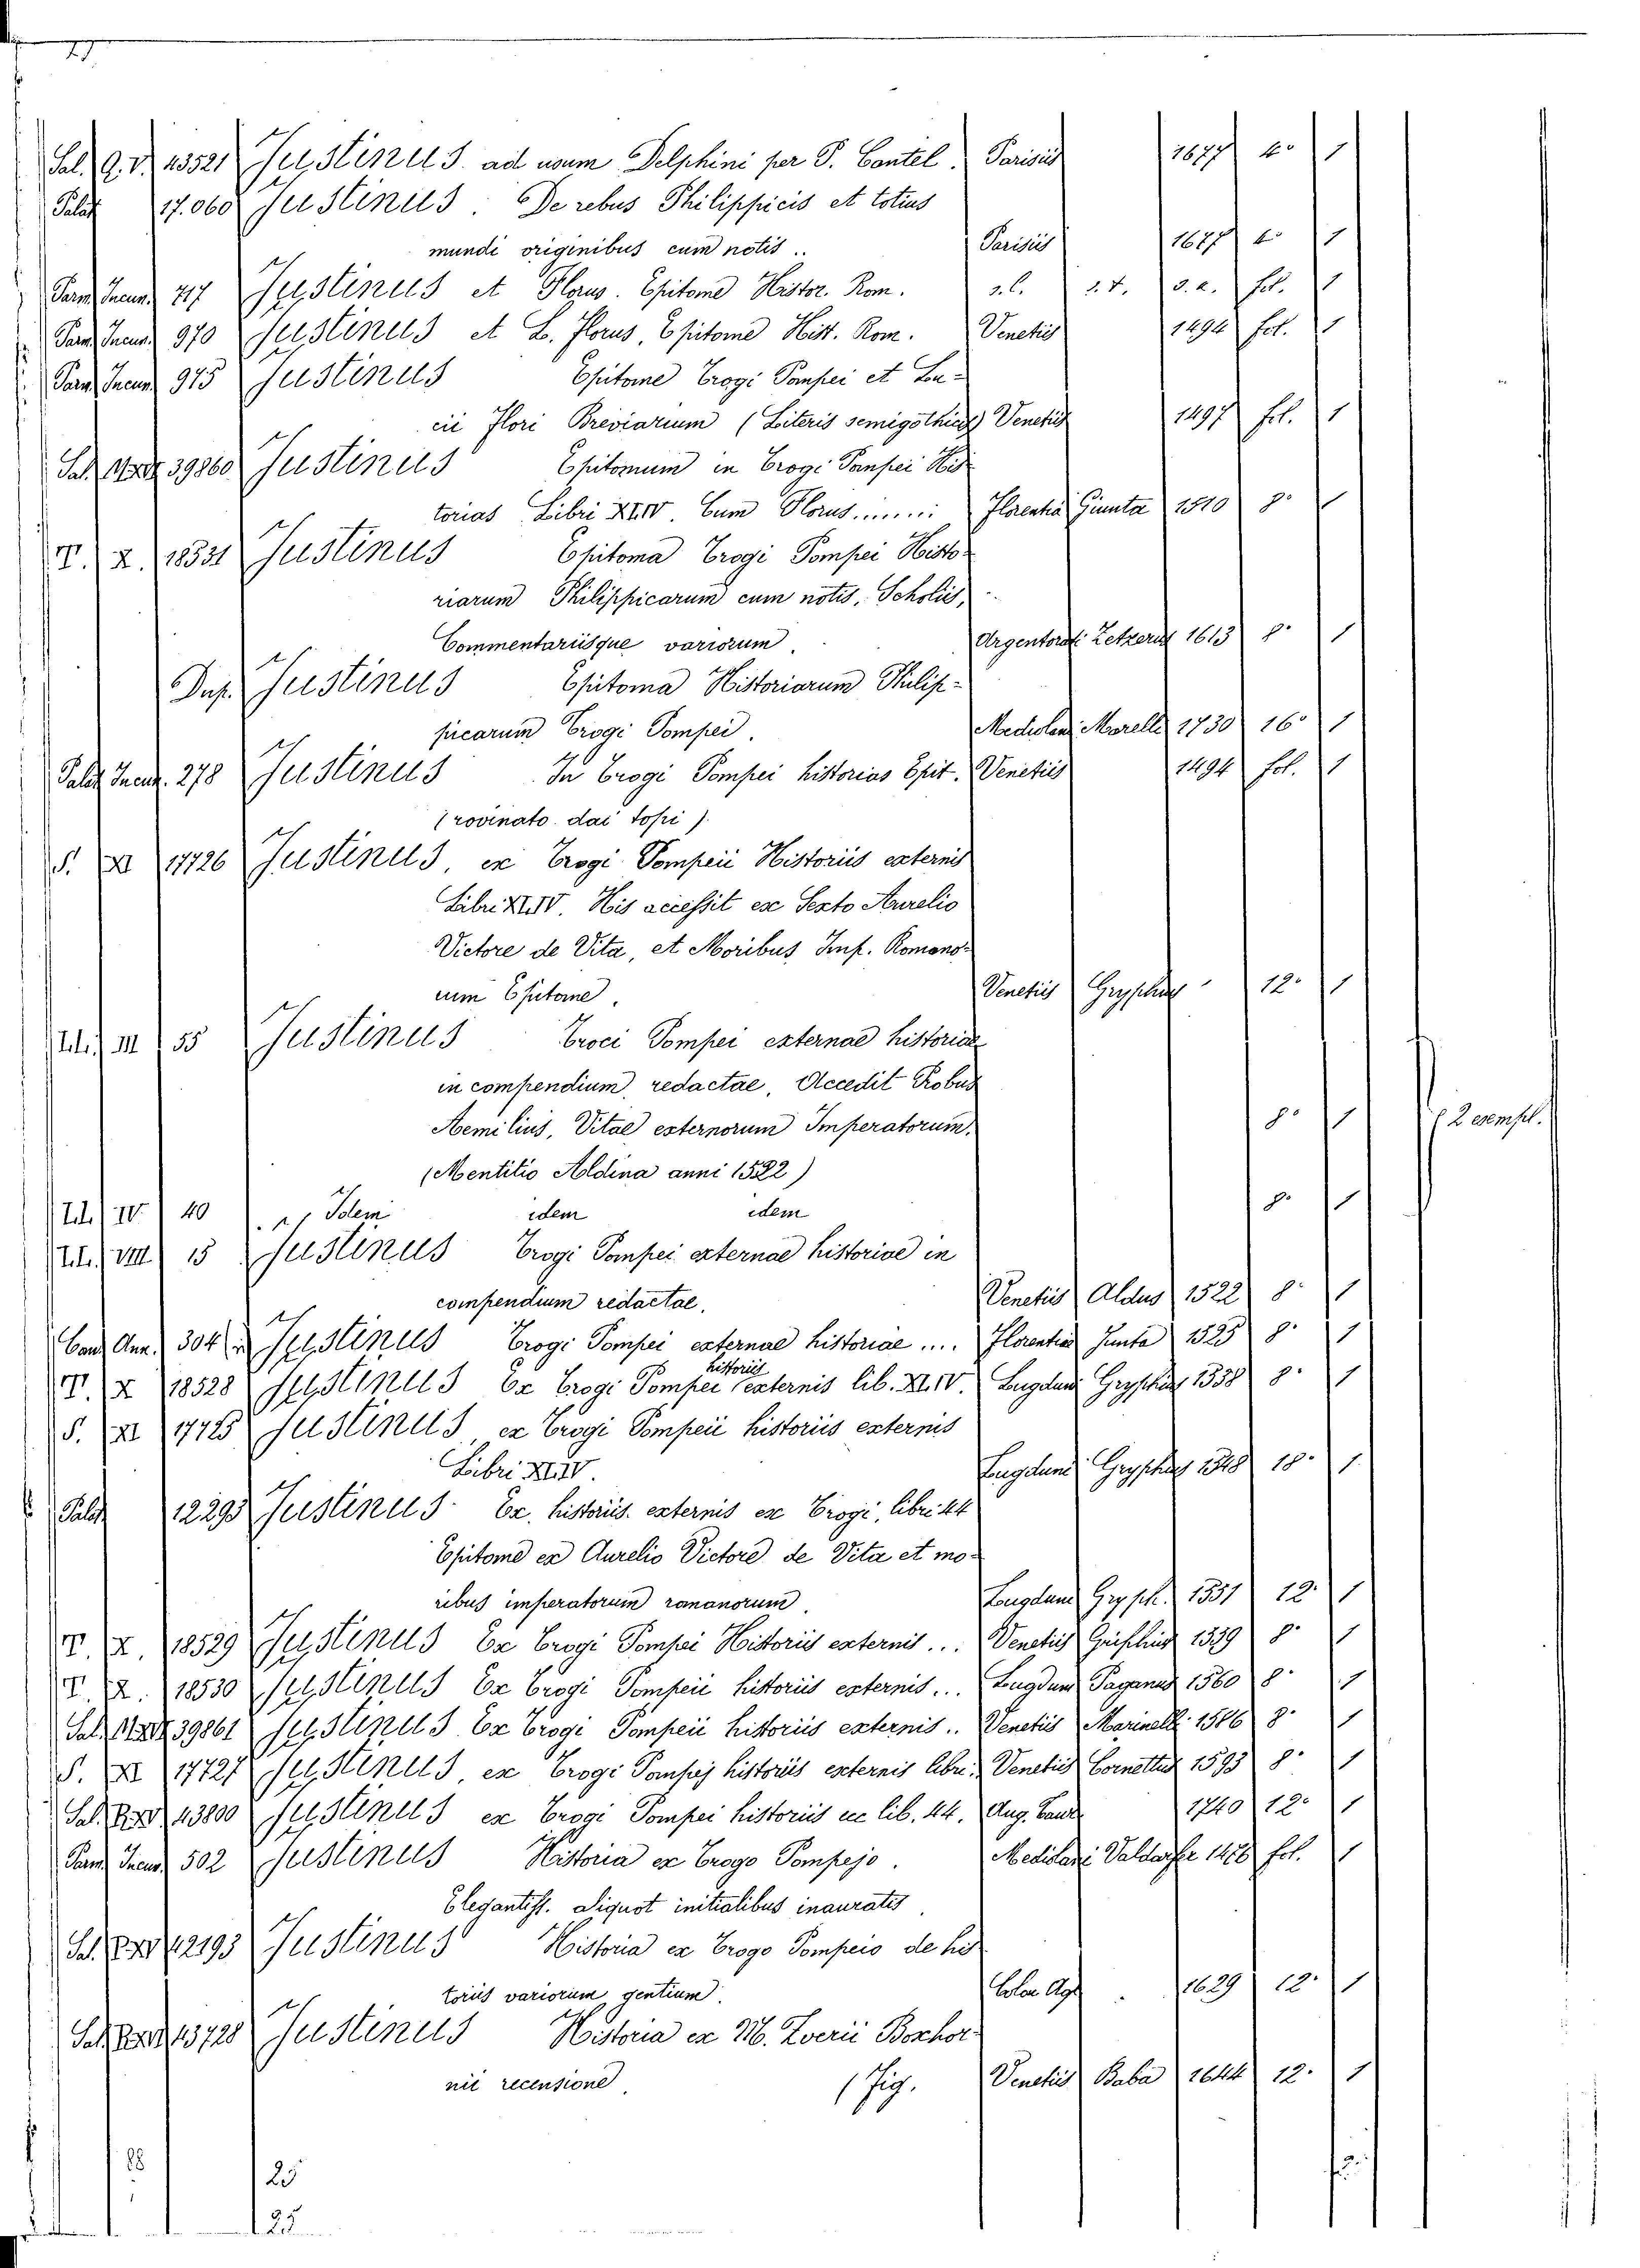 Sal. Q. V. 43521 Justinus ad usum Delphini per P. Cantel. Parisiis 1677 4° 1
Palat 17.060 Justinus. De rebus Philippicis et totius
mundi originibus cum notis.. Parisiis 1677 4° 1
Parm. Incun. 717 Justinus et Florus. Epitome Histor. Rom. s. l. s. t. s. a. fol. 1
Parm. Incun. 970 Justinus et L. Florus, Epitome Hist. Rom. Venetiis 1494 fol. 1
Parm. Incun. 975 Justinus Epitome Trogi Pompei et Lu-
cii Flori Breviarium (Literis semigothicis) Venetiis 1497 fol. 1
Sal. 39860 Justinus Epitomum in Trogi Pompei His
torias Libri XLIV. Cum Florus....... Florentiae Giunta 1510 8° 1
T. X. 18531 Justinus Epitoma Trogi Pompei Histo-
riarum Philippicarum cum notis, Scholiis,
Commentariisque variorum. Argentorati Zetzerus 1613 8° 1
Dup. Justinus Epitoma Historiarum Philip-
picarum Trogi Pompei. Mediolani Morelli 1730 16° 1
Palat. Incun. 278 Justinus In Trogi Pompei historias Epit. Venetiis 1494 fol. 1
(rovinato dai topi)
S. XI 17726 Justinus, ex Trogi Pompeii Historiis externis
Libri XLIV. His accessit ex Sexto Aurelio
Victore de Vita, et Moribus Imp. Romano-
rum Epitome. Venetiis Gryphius 12° 1
Tel. III 55 Justinus Troci Pompei externae historiae
in compendium redactae, Accedit Probus
Aemilius, Vitae externorum Imperatorum. 8° 1 2 esempl.
(Mentitio Aldina anni 1522)
Tel. IV 40 Idem idem idem 8° 1
Tel. VIII. 15 Justinus Trogi Pompei externae historiae in
compendium redactae. Venetiis Aldus 1522 8° 1
Ann. 304 Justinus Trogi Pompei externae historiae .... Florentiae Junta 1525 8° 1
T. X 18528 Justinus Ex Trogi Pompei historiis externis lib. XLIV. Lugduni Gryphius 1538 8° 1
S. XI 17725 Justinus, ex Trogi Pompeii historiis externis
Libri XLIV. Lugduni Gryphius 1548 18° 1
Palat 12293 Justinus Ex historiis externis ex Trogi, libri 44
Epitome ex Aurelio Victore de Vita et mo-
ribus imperatorum romanorum. Lugduni Gryph. 1551 12° 1
T. X. 18529 Justinus Ex Trogi Pompei Historiis externis... Venetiis Griphius 1539 8° 1
T. X. 18530 Justinus Ex Trogi Pompeii historiis externis... Lugduni Paganus 1560 8° 1
Sal. 39861 Justinus Ex Trogi Pompeii historiis externis.. Venetiis Marinelli 1586 8° 1
S. XI 17727 Justinus, ex Trogi Pompej historiis externis libri. Venetiis Cornettus 1593 8° 1
Sal. 43800 Justinus ex Trogi Pompei historiis lib. 44. Aug. Taur 1740 12° 1
Parm. Incun. 502 Justinus Historia ex Trogo Pompejo. Mediolani Valdarfer 1476 fol. 1
Elegantiss. Liquot initialibus inauratis
Sal. 42193 Justinus Historia ex Trogo Pompeio de his
toriis variorum gentium. Colon Agr. 1629 12° 1
Sal. 43728 Justinus Historia ex M. Zverii Boxhor-
nii recensione. (Fig. Venetiis Baba 1644 12° 1
88 25
25